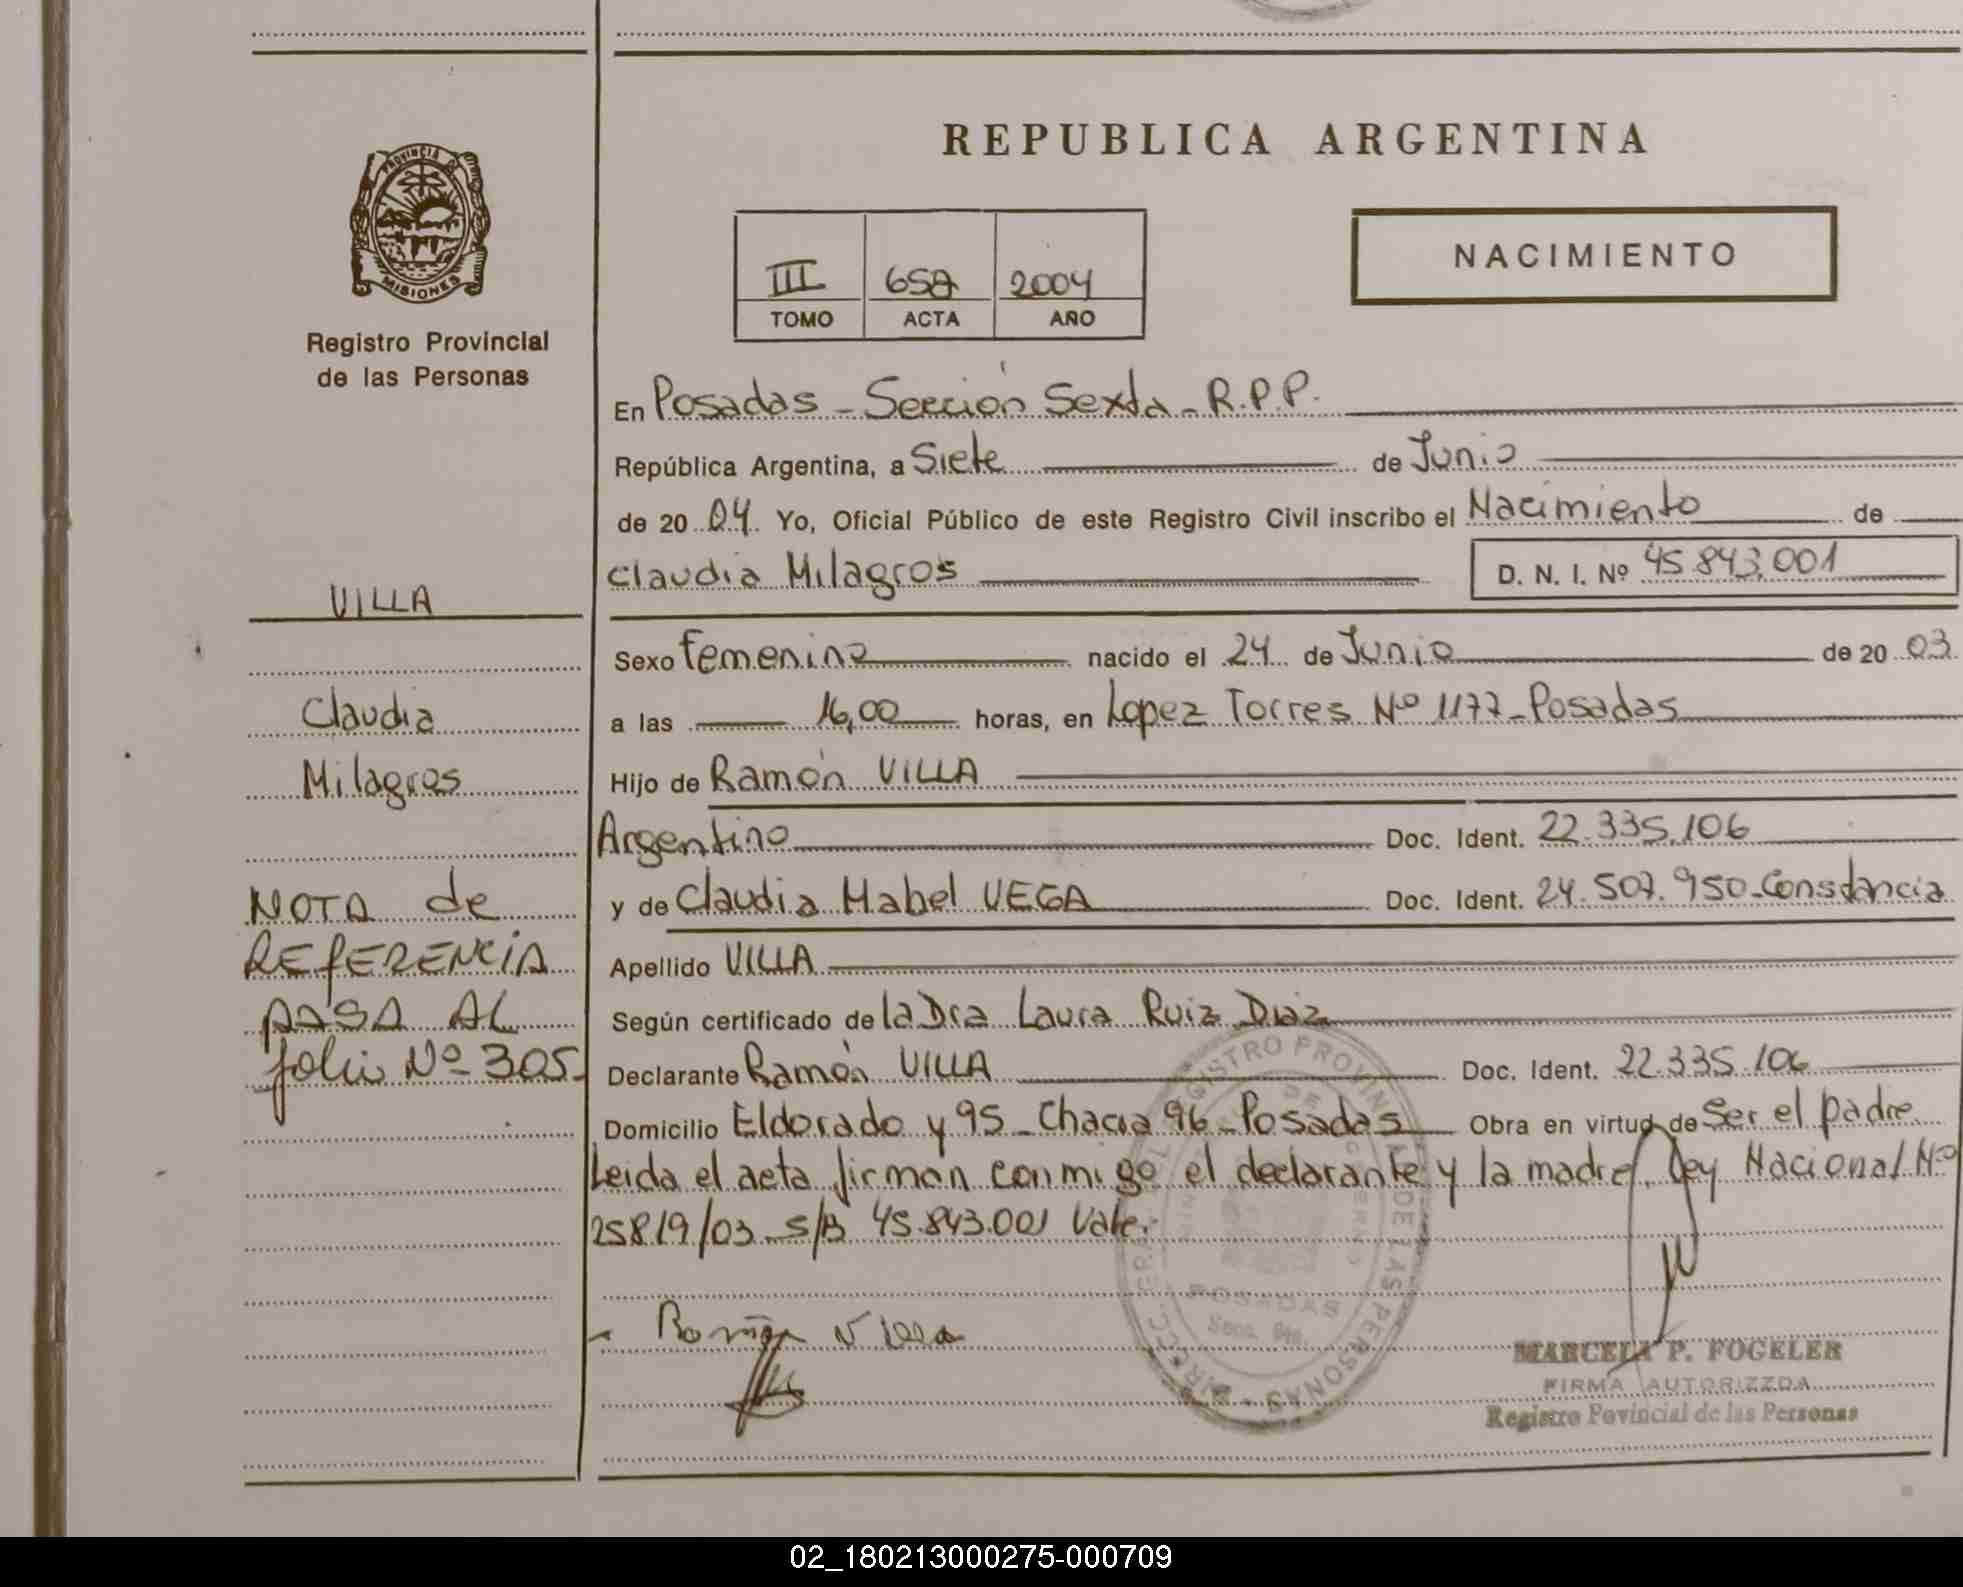 REPUBLICA ARGENTINA
PROVINCIA DE
MISIONES
Registro Provincial
de las Personas
NACIMIENTO
III 2004
TOMO ACTA AÑO
En Posadas - Sección Sexta - R.P.P.
República Argentina, a Siete de Junio
de 20 04 Yo, Oficial Público de este Registro Civil inscribo el Nacimiento de
Claudia Milagros D. N. I. Nº 45.843.001
VILLA
Claudia
Milagros
NOTA de
REFERENCIA
PASA AL
folio Nº 305.
Sexo Femenino nacido el 24 de Junio de 20 03
a las 16,00 horas, en Lopez Torres Nº 1177 - Posadas
Hijo de Ramón VILLA
Argentino Doc. Ident. 22.335.106
y de Claudia Mabel VEGA Doc. Ident. 24.507.950 - Constancia
Apellido VILLA
Según certificado de la Dra Laura Ruiz Diaz
Declarante Ramón VILLA Doc. Ident. 22.335.106
Domicilio Eldorado y 95 - Chacra 96 - Posadas Obra en virtud de Ser el padre
Leida el acta firman conmigo el declarante y la madre. Ley Nacional Nº
25819/03 S/B 45.843.001 Vale.
Ramón Villa
REGISTRO PROVINCIAL DE LAS PERSONAS
POSADAS
MARCELA P. FOGELER
FIRMA AUTORIZZDA
Registro Povincial de las Personas
02_180213000275-000709